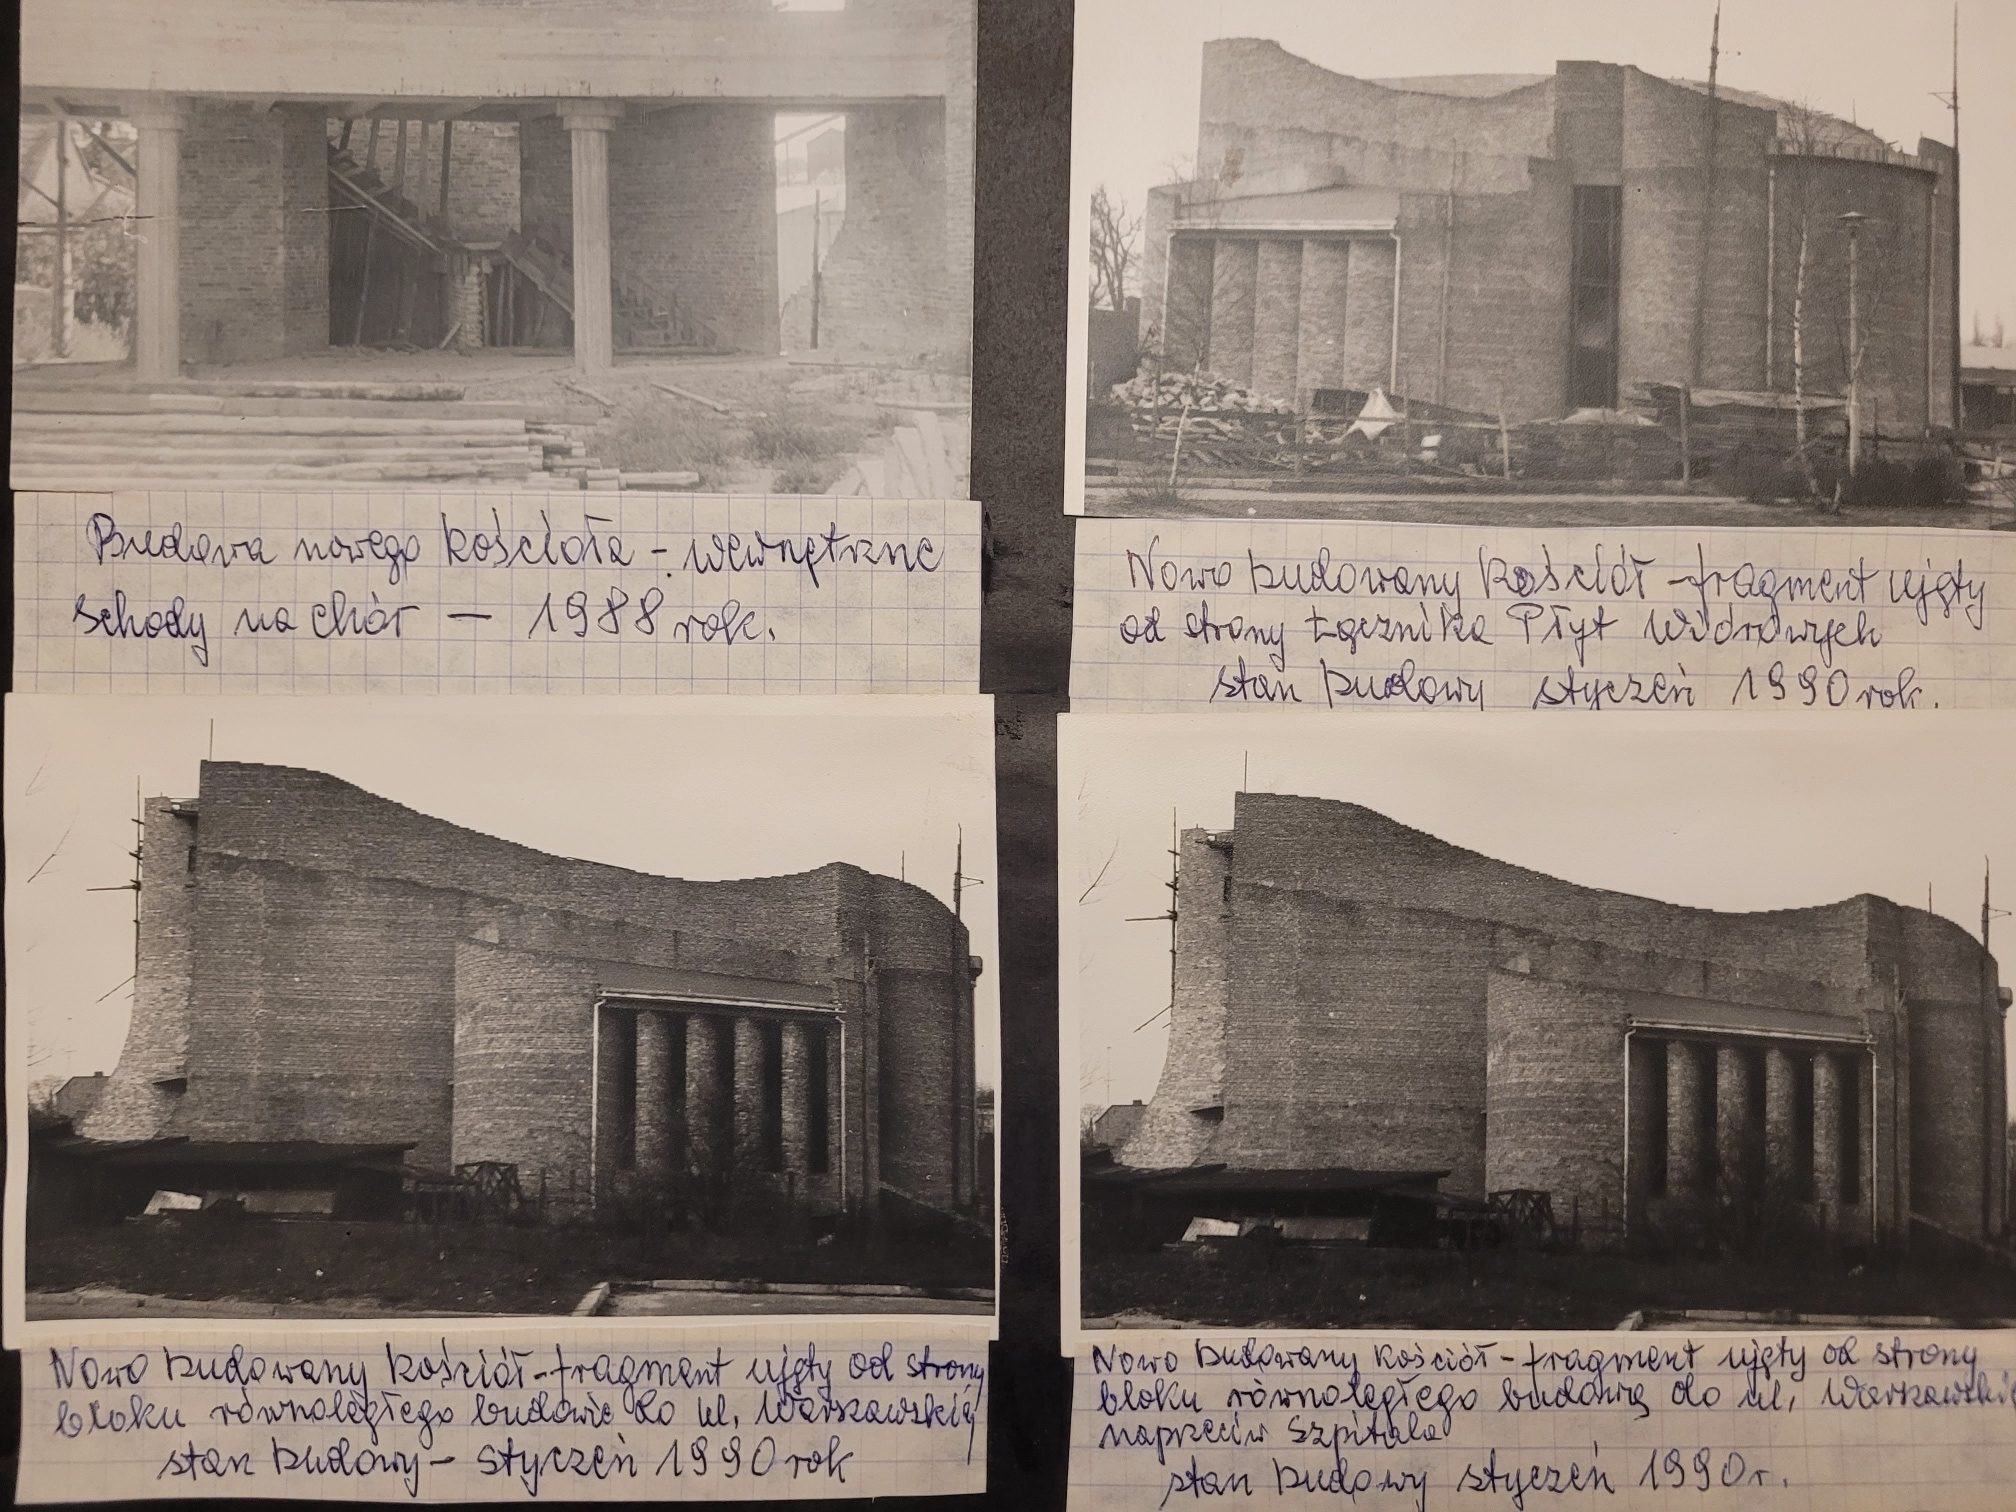 Budowa nowego kościoła - wewnętrzne
schody na chór — 1988 rok.
Nowo budowany kościół - fragment ujęty
od strony Łącznika Płyt Wiórowych
stan budowy styczeń 1990 rok.
Nowo budowany kościół - fragment ujęty od strony
bloku równoległego budowie do ul. Warszawskiej
stan budowy - styczeń 1990 rok
Nowo budowany kościół - fragment ujęty od strony
bloku równoległego budową do ul. Warszawskiej
naprzeciw Szpitala
stan budowy styczeń 1990r.